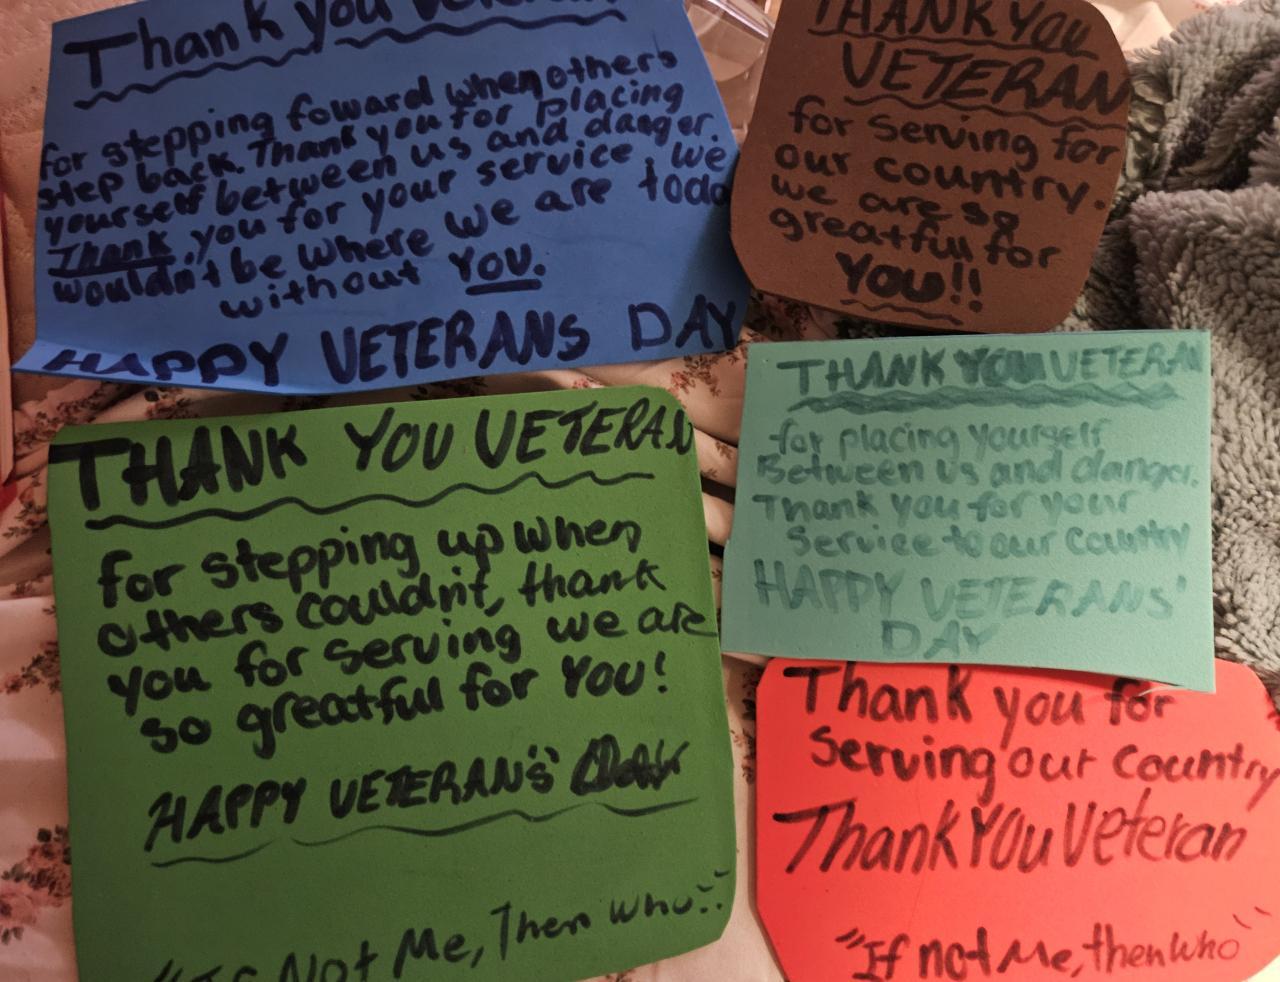 Thank you Veteran
for stepping foward when others
step back. Thank you for placing
yourself between us and danger.
Thank you for your service. We
wouldn't be where we are today
without YOU.
HAPPY VETERANS DAY
THANK YOU
VETERAN
for serving for
our country.
we are so
greatful for
YOU!!
THANK YOU VETERAN
for stepping up when
others couldn't, thank
you for serving we are
so greatful for YOU!
HAPPY VETERAN'S DAY
"If Not Me, Then Who"
THANK YOU VETERAN
for placing yourself
Between us and danger.
Thank you for your
Service to our Country
HAPPY VETERANS'
DAY
Thank you for
serving our Country
Thank YOU Veteran
"If not Me, then Who"